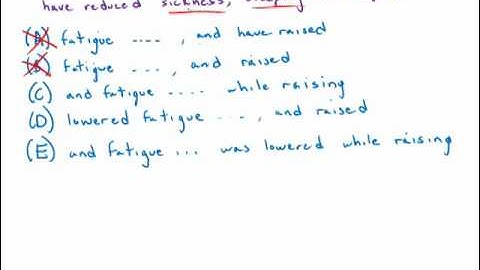 have reduced sickness,
(A) fatigue ...., and have raised
(B) fatigue ..., and raised
(C) and fatigue .... while raising
(D) lowered fatigue ..., and raised
(E) and fatigue ... was lowered while raising